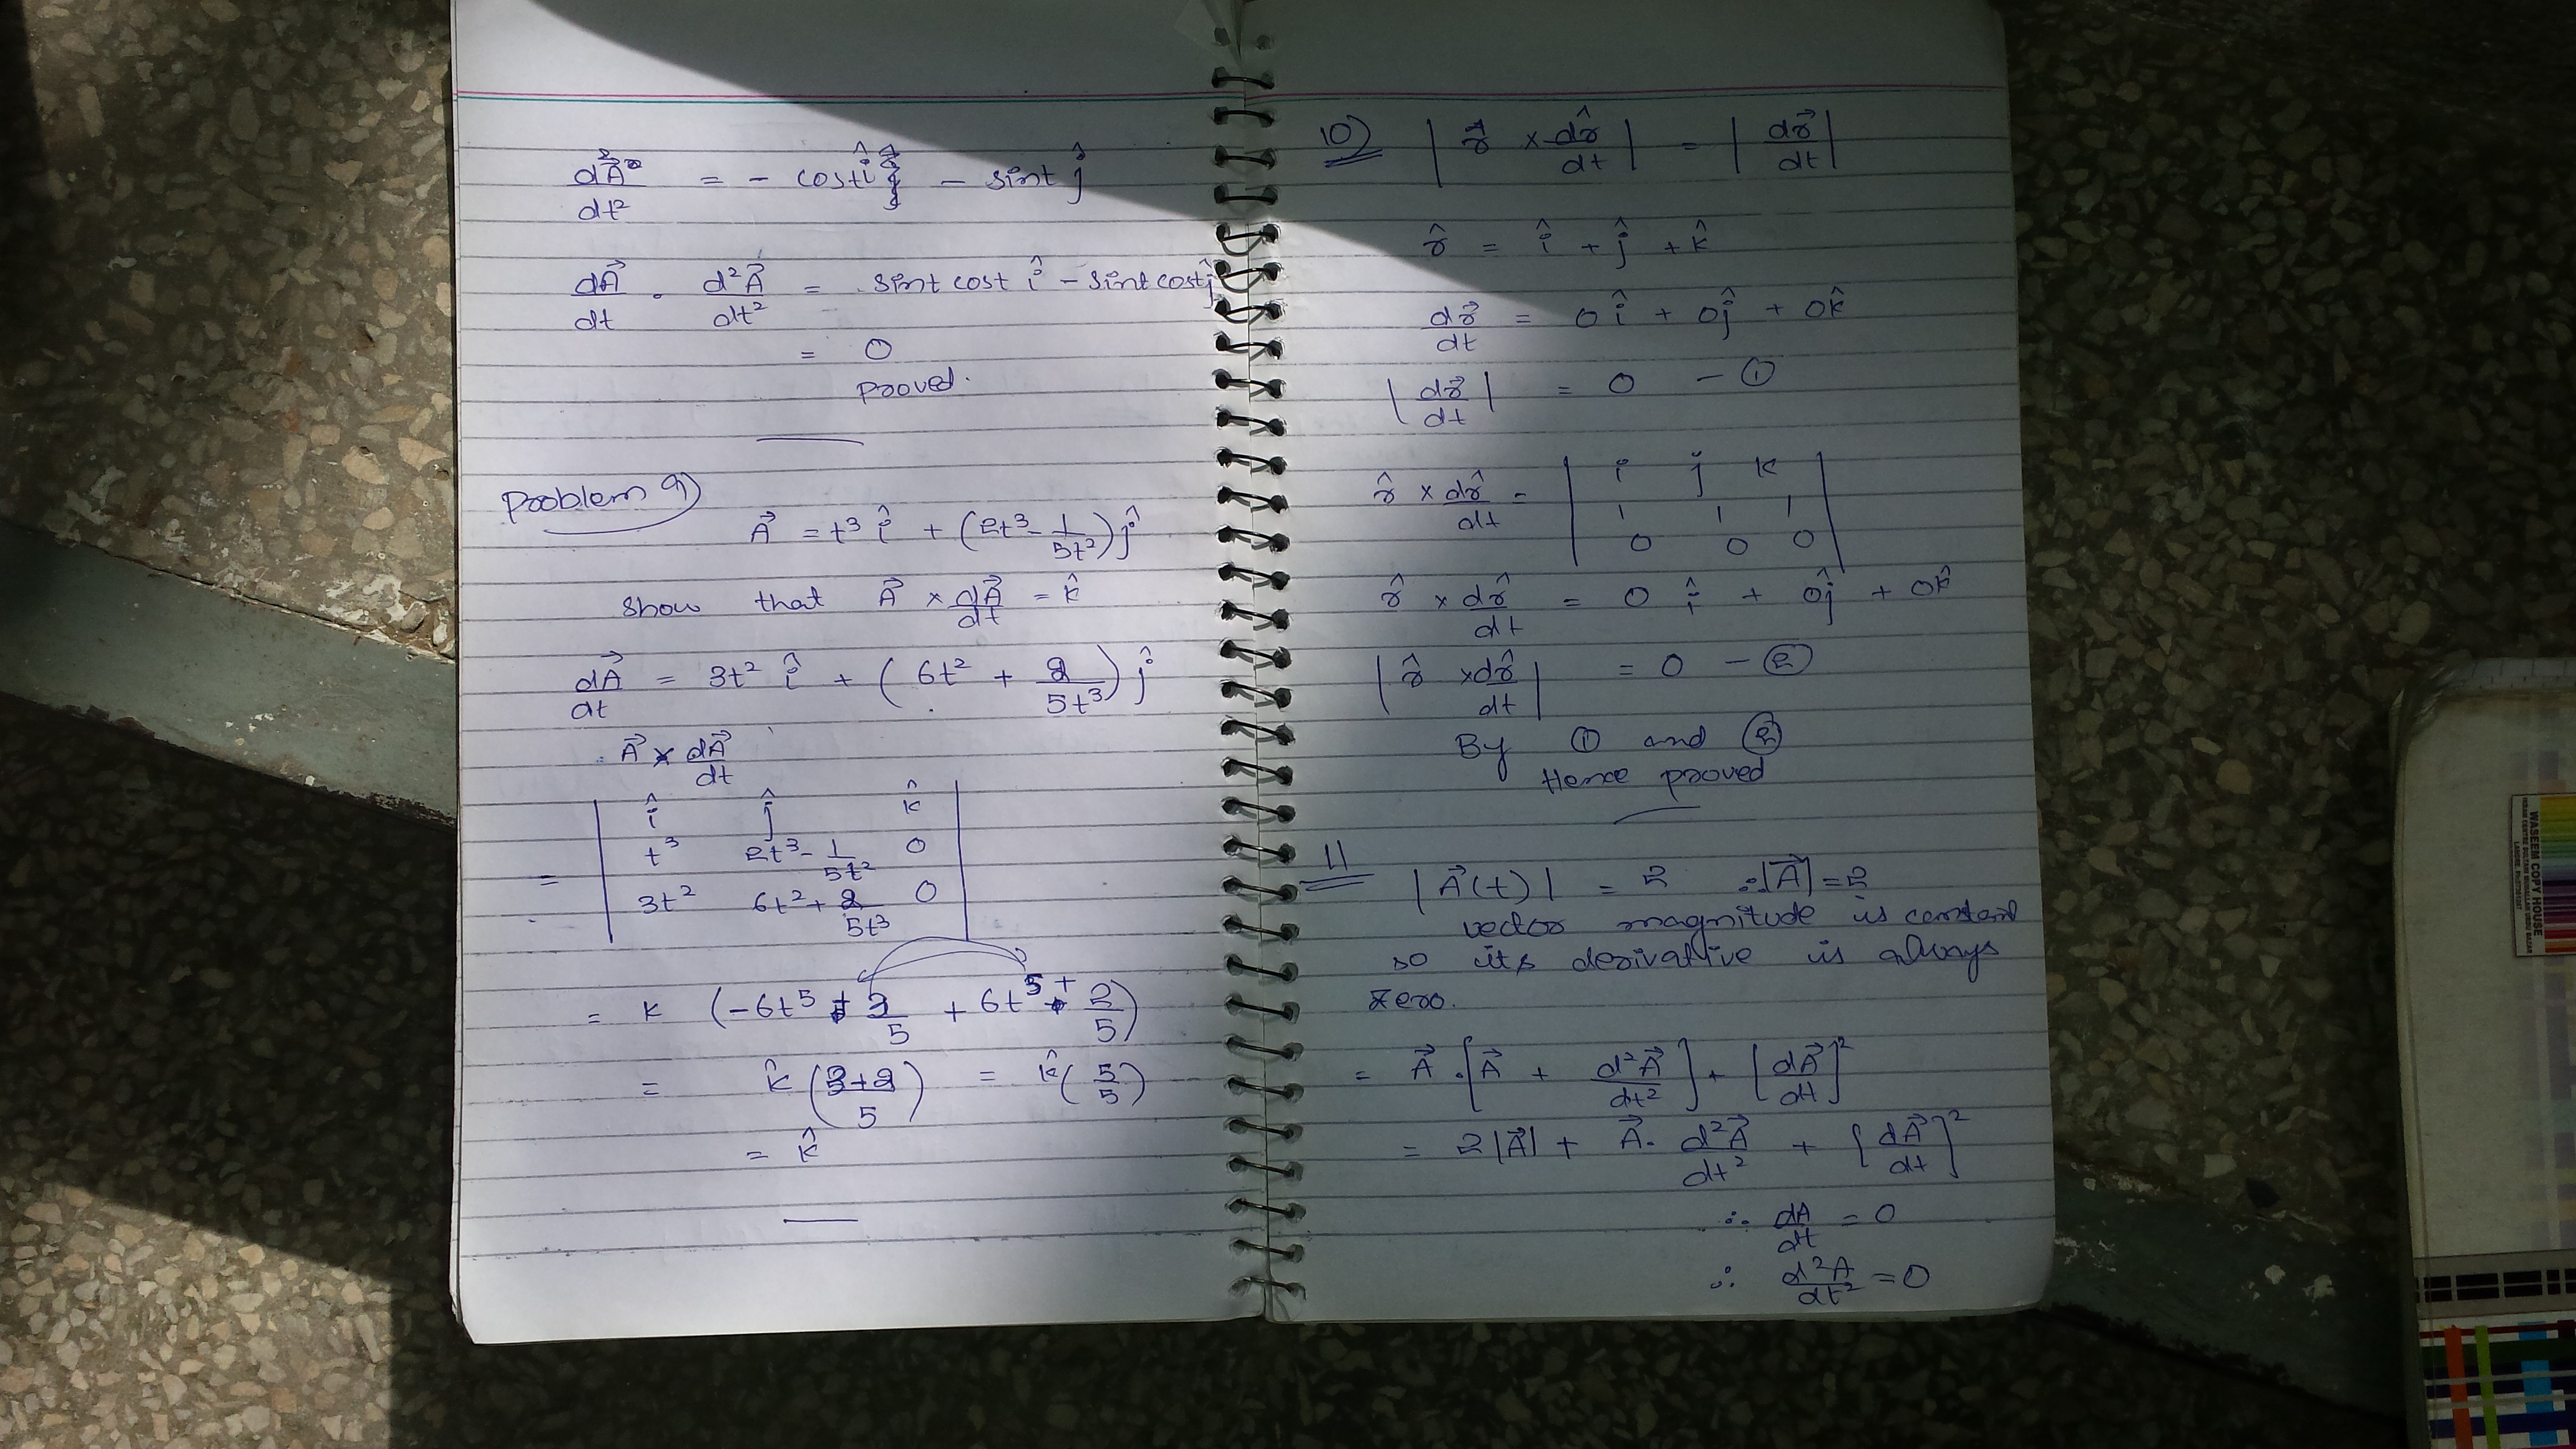 d²A⃗/dt² = - cost î - sint ĵ
dA⃗/dt . d²A⃗/dt² = sint cost î - sint cost ĵ
= 0
proved.
Problem 9)
A⃗ = t³ î + (2t³ - 1/5t²) ĵ
show that A⃗ × dA⃗/dt = k̂
dA⃗/dt = 3t² î + (6t² + 2/5t³) ĵ
A⃗ × dA⃗/dt
î ĵ k̂
t³ 2t³ - 1/5t² 0
= 3t² 6t² + 2/5t³ 0
= k (-6t⁵ + 3/5 + 6t⁵ + 2/5)
= k̂ (3+2/5) = k̂ (5/5)
= k̂
10) | r̂ × dr̂/dt | = | dr⃗/dt |
r̂ = î + ĵ + k̂
dr⃗/dt = 0 î + 0ĵ + 0k̂
| dr⃗/dt | = 0 - ①
r̂ × dr̂/dt = | i j k
1 1 1
0 0 0 |
r̂ × dr̂/dt = 0 î + 0ĵ + 0k̂
| r̂ × dr̂/dt | = 0 - ②
By ① and ②
Hence proved
11 | A⃗(t) | = 2 ∴ |A⃗| = 2
vector magnitude is constant
so its derivative is always
zero.
= A⃗ . [A⃗ + d²A⃗/dt²] + [dA⃗/dt]²
= 2 |A⃗| + A⃗. d²A⃗/dt² + [dA⃗/dt]²
∴ dA/dt = 0
∴ d²A/dt² = 0
WASEEM COPY HOUSE